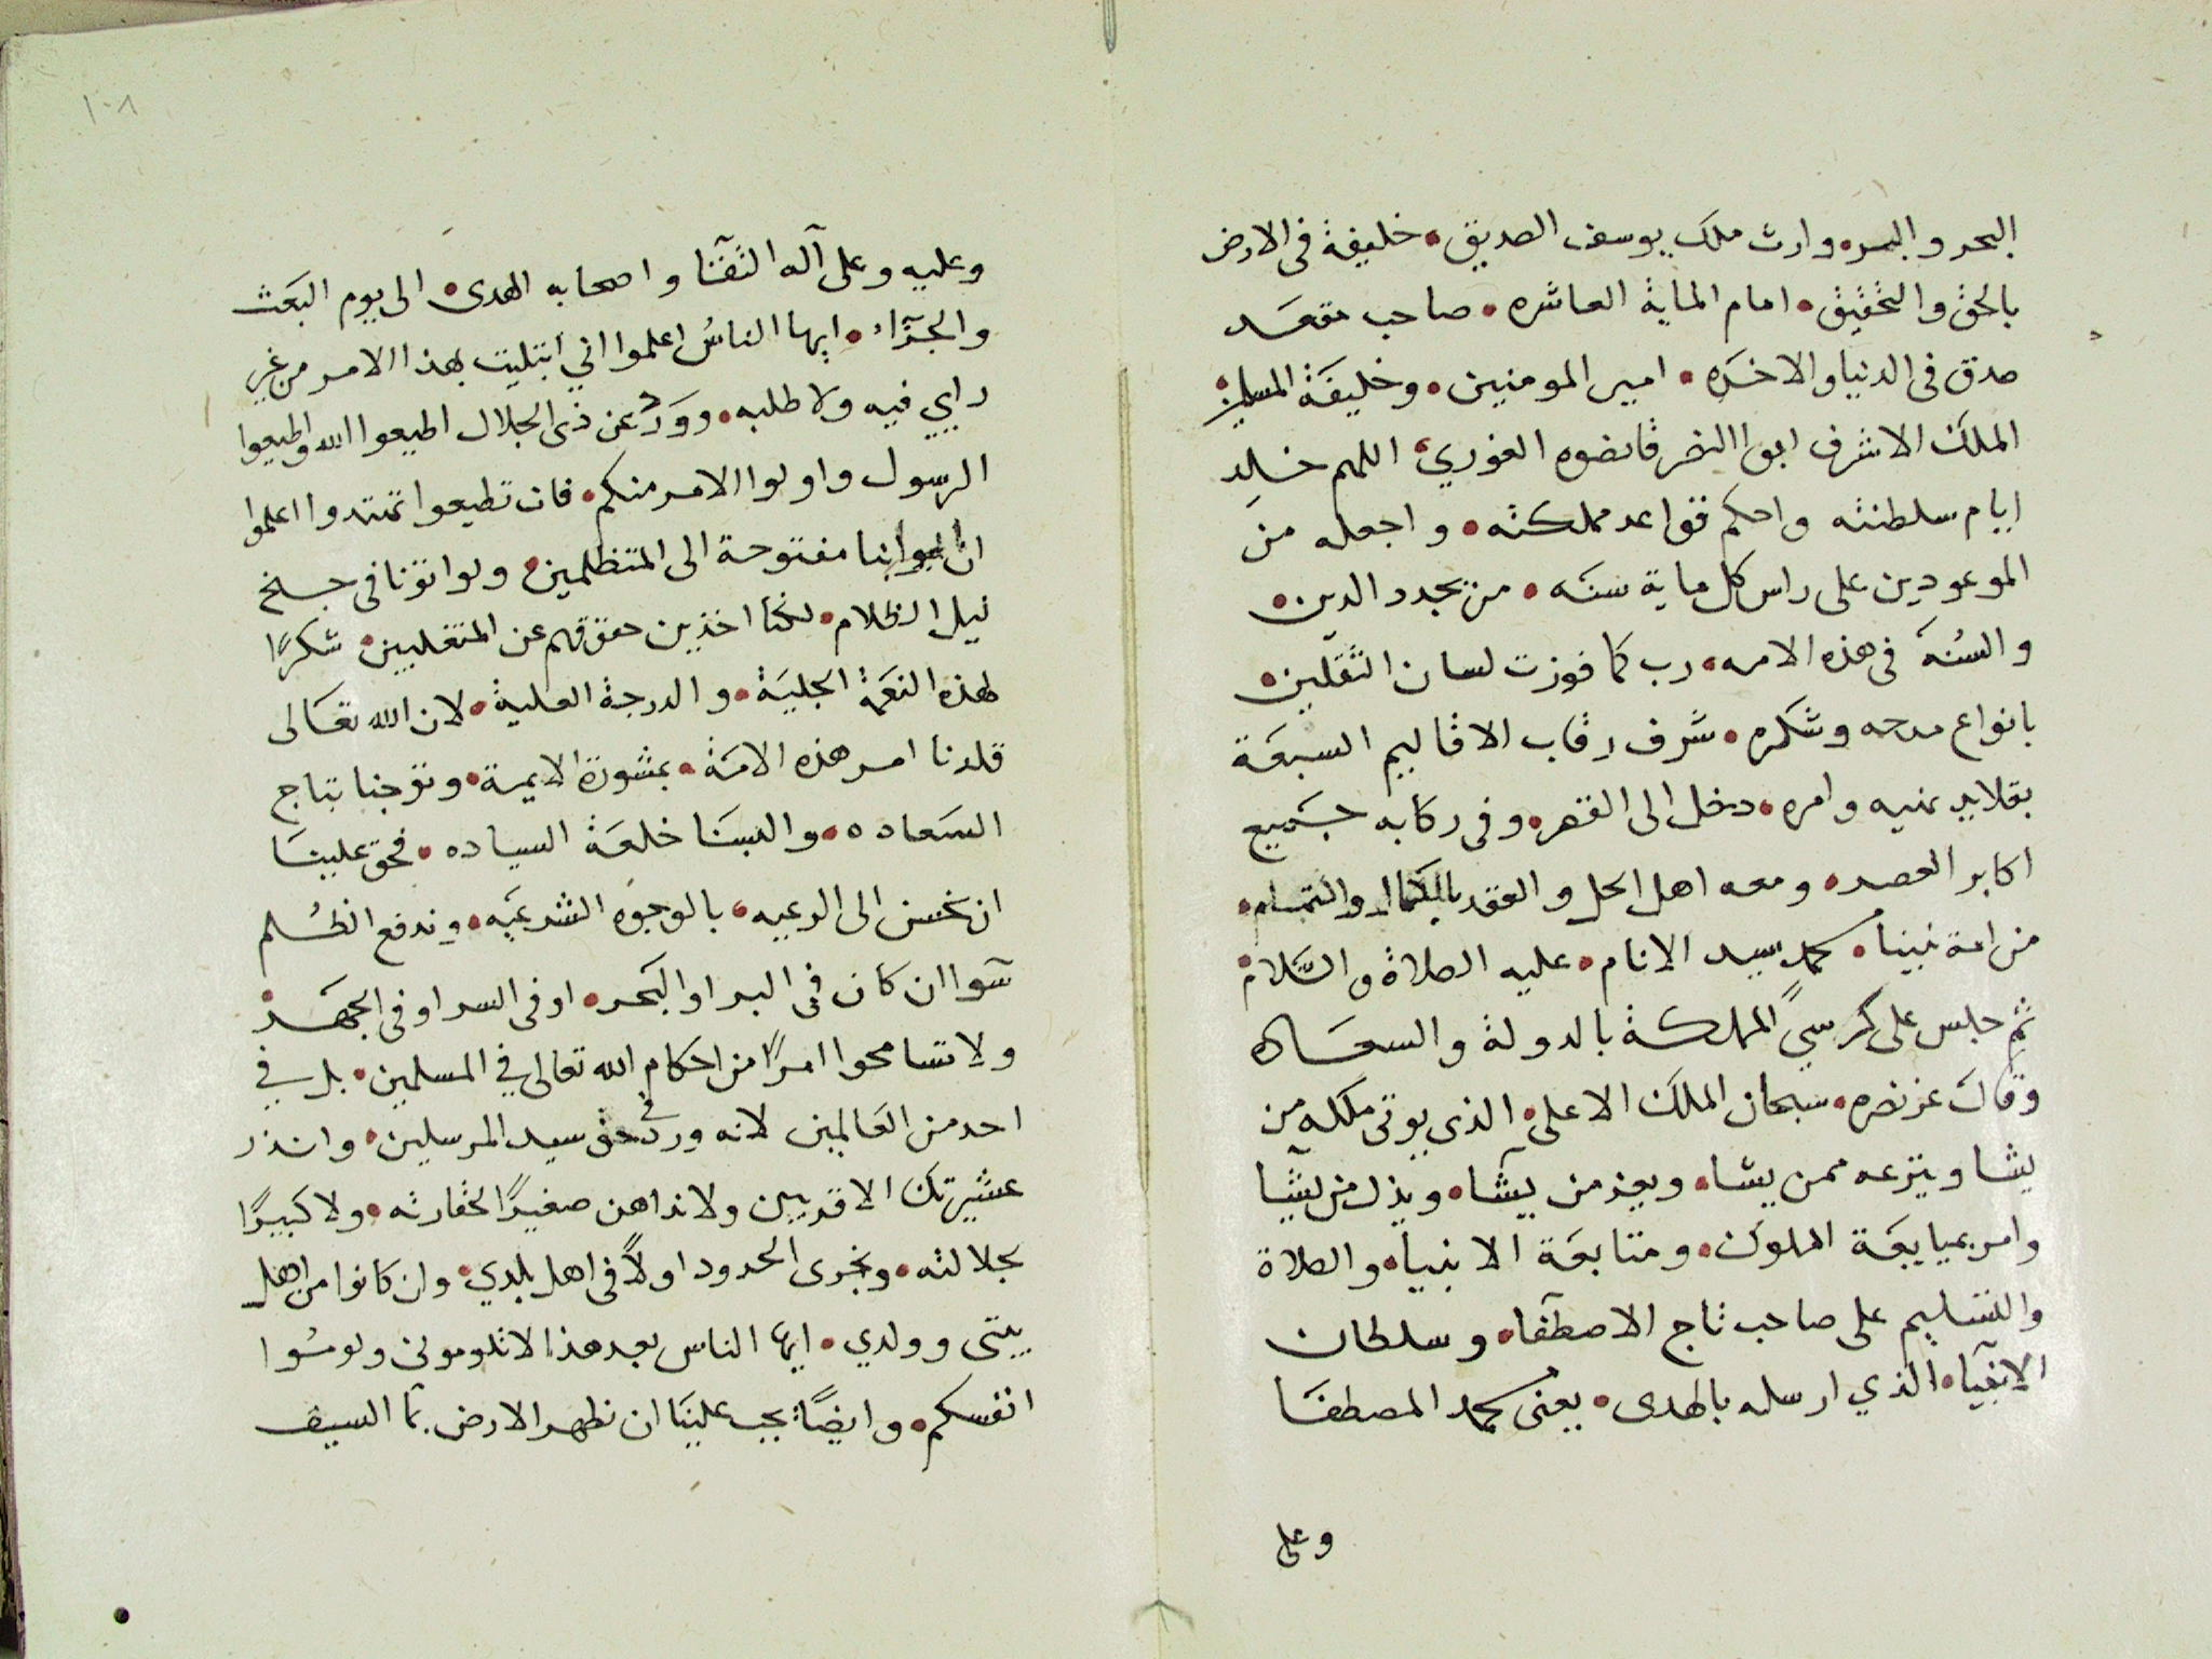 البحر والبره وارث ملك يوسف الصديق • خليفة فى الارض
بالحق والتحقيق • امام الماية العاشره • صاحب مقعد
صدق فى الدنيا والاخره • امير المومنين • وخليفة المسلمين
الملك الاشرف ابوا النصر قانصوه الغوري • اللهم خلد
ايام سلطنته واحكم قواعد مملكته • واجعله من
الموعودين على راس كل ماية سنه • من يجدد الدين •
والسُنة فى هذه الامه • رب كما فوزت لسان الثقلين •
بانواع مدحه وشكره • شرف رقاب الاقاليم السبعة
بقلايد نهيه وامره • دخل الى القصر • وفى ركابه جميع
اكابر العصر • ومعه اهل الحل والعقد بالكمال والتمام •
من امة نبينا • محمد سيد الانام • عليه الصلاة والسَّلام •
ثم جلس على كرسي المملكة بالدولة والسعاده
وقال عز نصره • سبحان الملك الاعلى • الذى يوتى ملكه من
يشا وينزعه ممن يشاء • ويعز من يشآء • ويذل من يشآ
وامر بمبايعة الملوك • ومتابعة الانبياء • والصلاة
والتسليم على صاحب تاج الاصطفآء • وسلطان
الانبيآء • الذي ارسله بالهدى • يعنى محمد المصطفا
وعلى
١٠٨
وعليه وعلى آله الثقتا واصحابه الهدى • الى يوم البعث
والجزآء • ايها الناسُ اعلموا اني ابتليت بهذا الامر من غير
رايي فيه ولا طلبه • وورد عن ذى الجلال اطيعوا الله واطيعوا
الرسول واولوا الامر منكم • فان تطيعوا تهتدوا اعلموا
ان ابوابنا مفتوحة الى المتظلمين • ولو اتونا فى جنح
نيل الظلام • لكنا اخذين حقوقهم عن المتغلبين • شكرًا
لهذه النعمة الجليَة • والدرجة العلية • لان الله تعالى
قلدنا امر هذه الامة • بمشورة الايمة • وتوجنا بتاج
السَعاده • والبسَنا خلعَة السياده • فحق علينا
ان نحسن الى الرعيه • بالوجوه الشرعيه • وندفع الظلم
سَوا ان كان فى البر او البَحر • او فى السر او فى الجهر •
ولا تسامحوا امرًا من احكام الله تعالى في المسلمين • بل في
احد من العَالمين لانه ورد فى حق سيد المرسلين • وانذر
عشيرتك الاقربين ولا نداهن صغيرًا لحقارته • ولا كبيرًا
لجلالته • ونجرى الحدود اولاً فى اهل بلدي • وان كانوا من اهل
بيتى وولدي • ايها الناس بعد هذا لا تلومونى ولومُوا
انفسكم • وايضًا يجب علينا ان نطهر الارض بمآ السيف